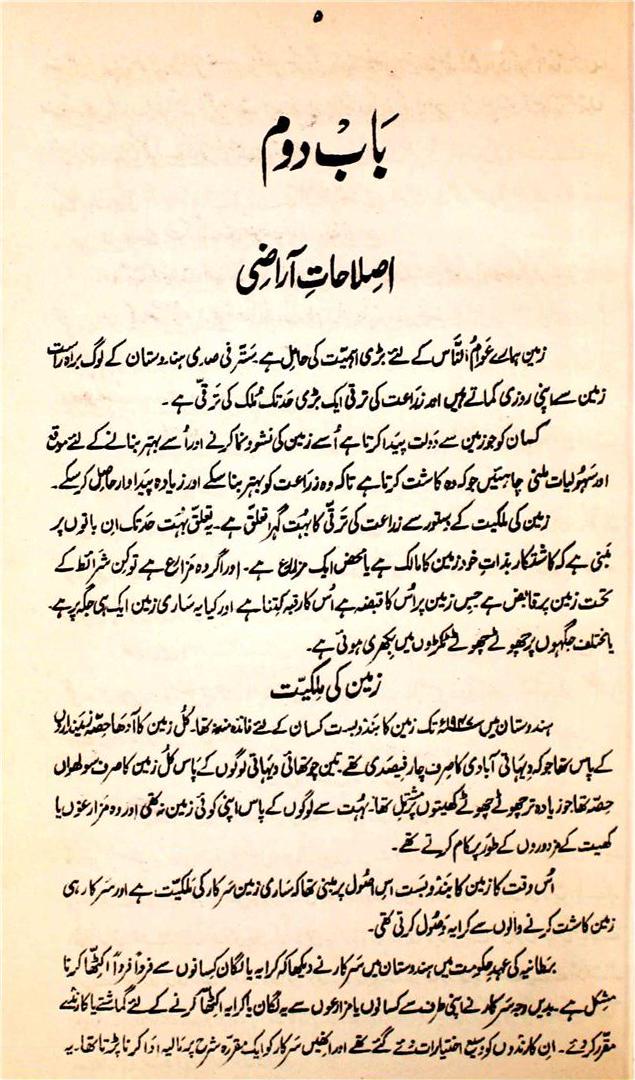 ۵
بَابْ دوم
اصلاحاتِ آراضی
زمین ہمارے عَوامُ النَّاس کے لئے بڑی اہمیت کی حامِل ہے بستّر فی صدی ہندوستان کے لوگ براہ راست
زمین سے اپنی روزی کماتے ہیں اور زراعت کی ترقی ایک بڑی حد تک مُلک کی ترقّی ہے ۔
کسان کو جو زمین سے دَولت پیدا کرتا ہے اُسے زمین کی نشوونما کرنے اور اُسے بہتر بنانے کے لئے موقع
اور سَہُولیات ملنی چاہئیں جو کہ وہ کاشت کرتا ہے تاکہ وہ زراعت کو بہتر بنا سکے اور زیادہ پیداوار حاصل کر سکے۔
زمین کی ملکیت کے دستور سے زراعت کی ترقّی کا بہت گہرا تعلق ہے ۔ یہ تعلّق بہت حد تک اِن باتوں پر
مَبنی ہے کہ کاشتکار بذاتِ خود زمین کا مالک ہے یا محض ایک مزارع ہے ۔ اور اگر وہ مزارع ہے تو کن شرائط کے
تحت زمین پر قابِض ہے جس زمین پر اُس کا قبضہ ہے اُس کا رقبہ کِتنا ہے اور کیا یہ ساری زمین ایک ہی جگہ پر ہے
یا مختلف جگہوں پر چھوٹے چھوٹے ٹکڑوں میں بکھری ہوئی ہے۔
زمین کی مِلکیّت
ہندوستان میں ۱۹۴۷ء تک زمین کا بندوبست کسان کے لئے فائدہ مند نہ تھا۔ کُل زمین کا آدھا حِصّہ زمینداروں
کے پاس تھا جو کہ دیہاتی آبادی کا صِرف چار فیصدی تھے۔ تین چوتھائی دیہاتی لوگوں کے پاس کُل زمین کا صرف سولھواں
حِصّہ تھا جو زیادہ تر چھوٹے چھوٹے کھیتوں پر مُشتَمِل تھا۔ بہت سے لوگوں کے پاس اپنی کوئی زمین نہ تھی اور وہ مزارعوں یا
کھیت کے مزدوروں کے طَور پر کام کرتے تھے۔
اُس وقت کا زمین کا بندوبست اِس اصُول پر مبنی تھا کہ ساری زمین سرکار کی ملکیّت ہے اور سرکار ہی
زمین کاشت کرنے والوں سے کرایہ وصُول کرتی تھی۔
برطانیہ کی عہدِ حکومت میں ہندوستان میں سرکار نے دیکھا کہ کرایہ یا لگان کسانوں سے فرداً فرداً اکٹھا کرنا
مشکل ہے ۔ بدیں وجہ سرکار نے اپنی طرف سے کسانوں یا مزارعوں سے یہ لگان یا کرایہ اکٹھّا کرنے کے لئے گماشتے یا کارندے
مقرّر کر دئے۔ اِن کارندوں کو وسیع اختیارات دئے گئے تھے اور انھیں سرکار کو ایک مقررہ شرح پر مالیہ ادا کرنا پڑتا تھا۔ یہ